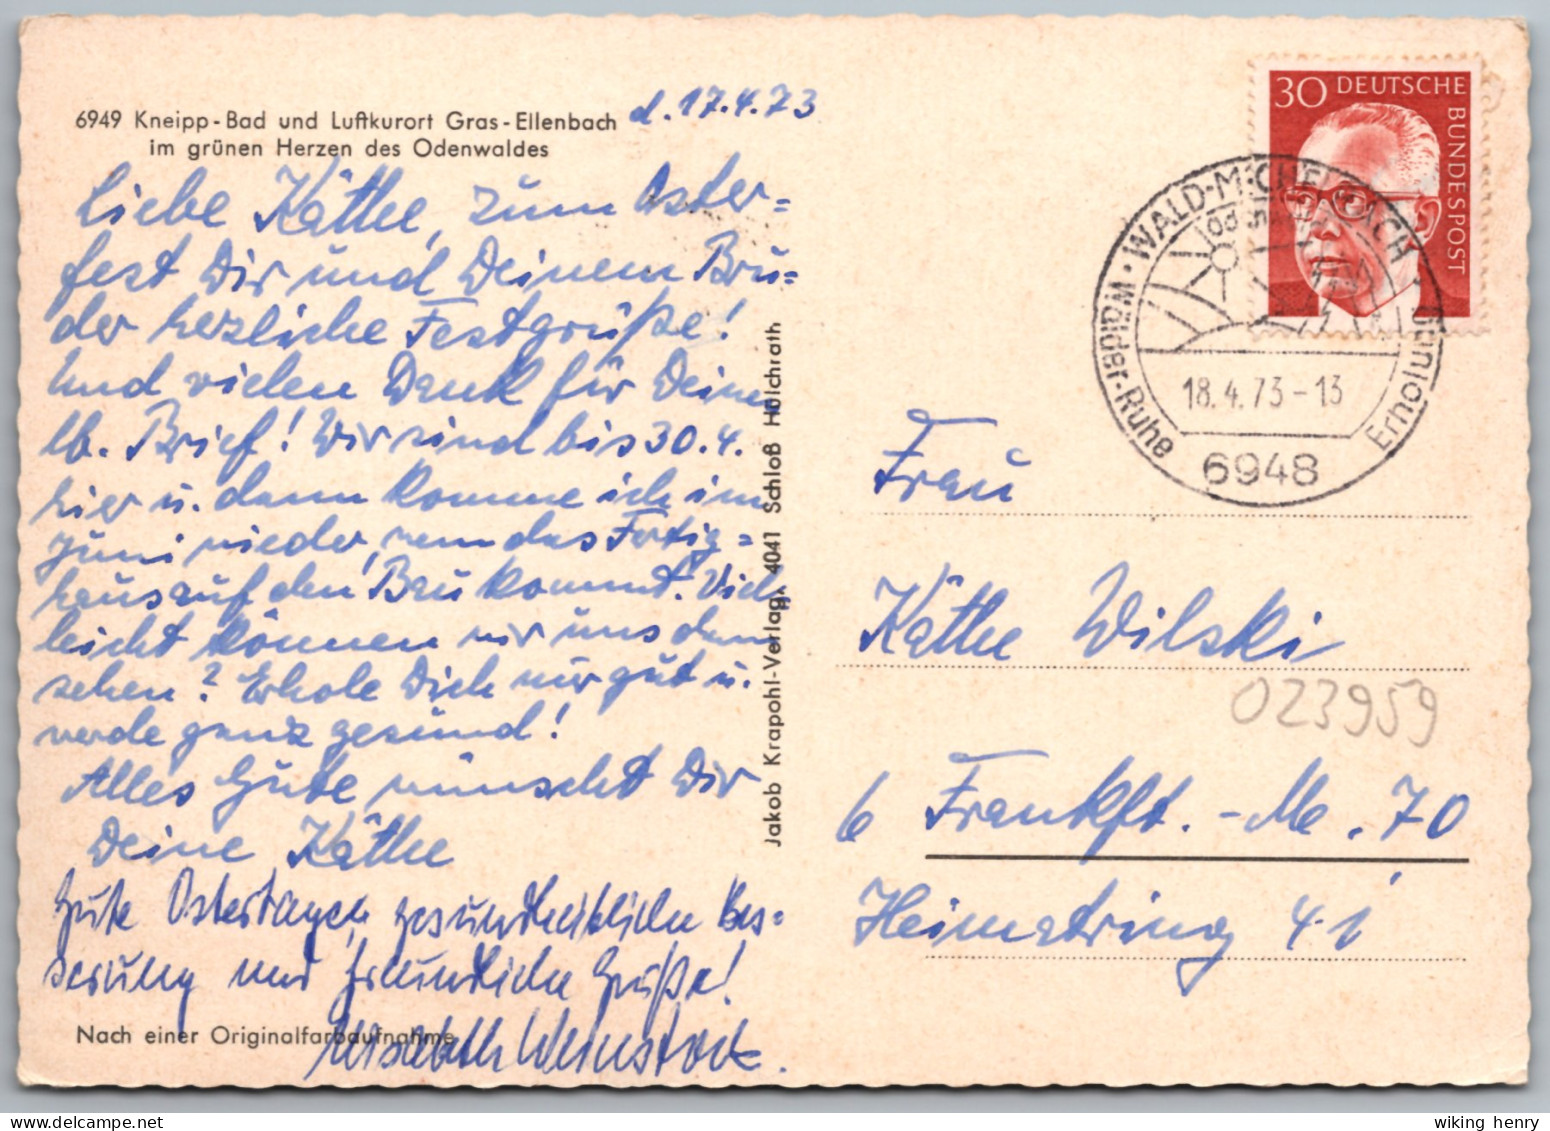 6949 Kneipp-Bad und Luftkurort Gras-Ellenbach
im grünen Herzen des Odenwaldes
d. 17.4.73
Liebe Käthe, zum Oster=
fest Dir und Deinem Bru=
der herzliche Festgrüße!
Und vielen Dank für Deinen
lb. Brief! Wir sind bis 30.4.
hier u. dann komme ich im
Juni wieder, wenn das Fertig=
haus auf den Bau kommt. Viel-
leicht können wir uns dann
sehen? Erhole Dich nur gut u.
werde ganz gesund!
Alles Gute wünscht Dir
Deine Käthe
Gute Ostertage, gesundheitliche Bes=
serung und freundliche Grüße!
Elisabeth Weinstock.
Nach einer Originalfarbaufnahme
Jakob Krapohl-Verlag, 4041 Schloß Hülchrath
30 DEUTSCHE
BUNDESPOST
WALD-MICHELBACH
Odenwald
Wälder-Ruhe
Erholung
18.4.73-13
6948
Frau
Käthe Wilski
023959
6 Frankft.-M. 70
Heimatring 41
wiking henry